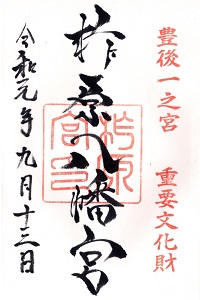 豊後一之宮 重要文化財
柞原八幡宮
令和元年九月十三日